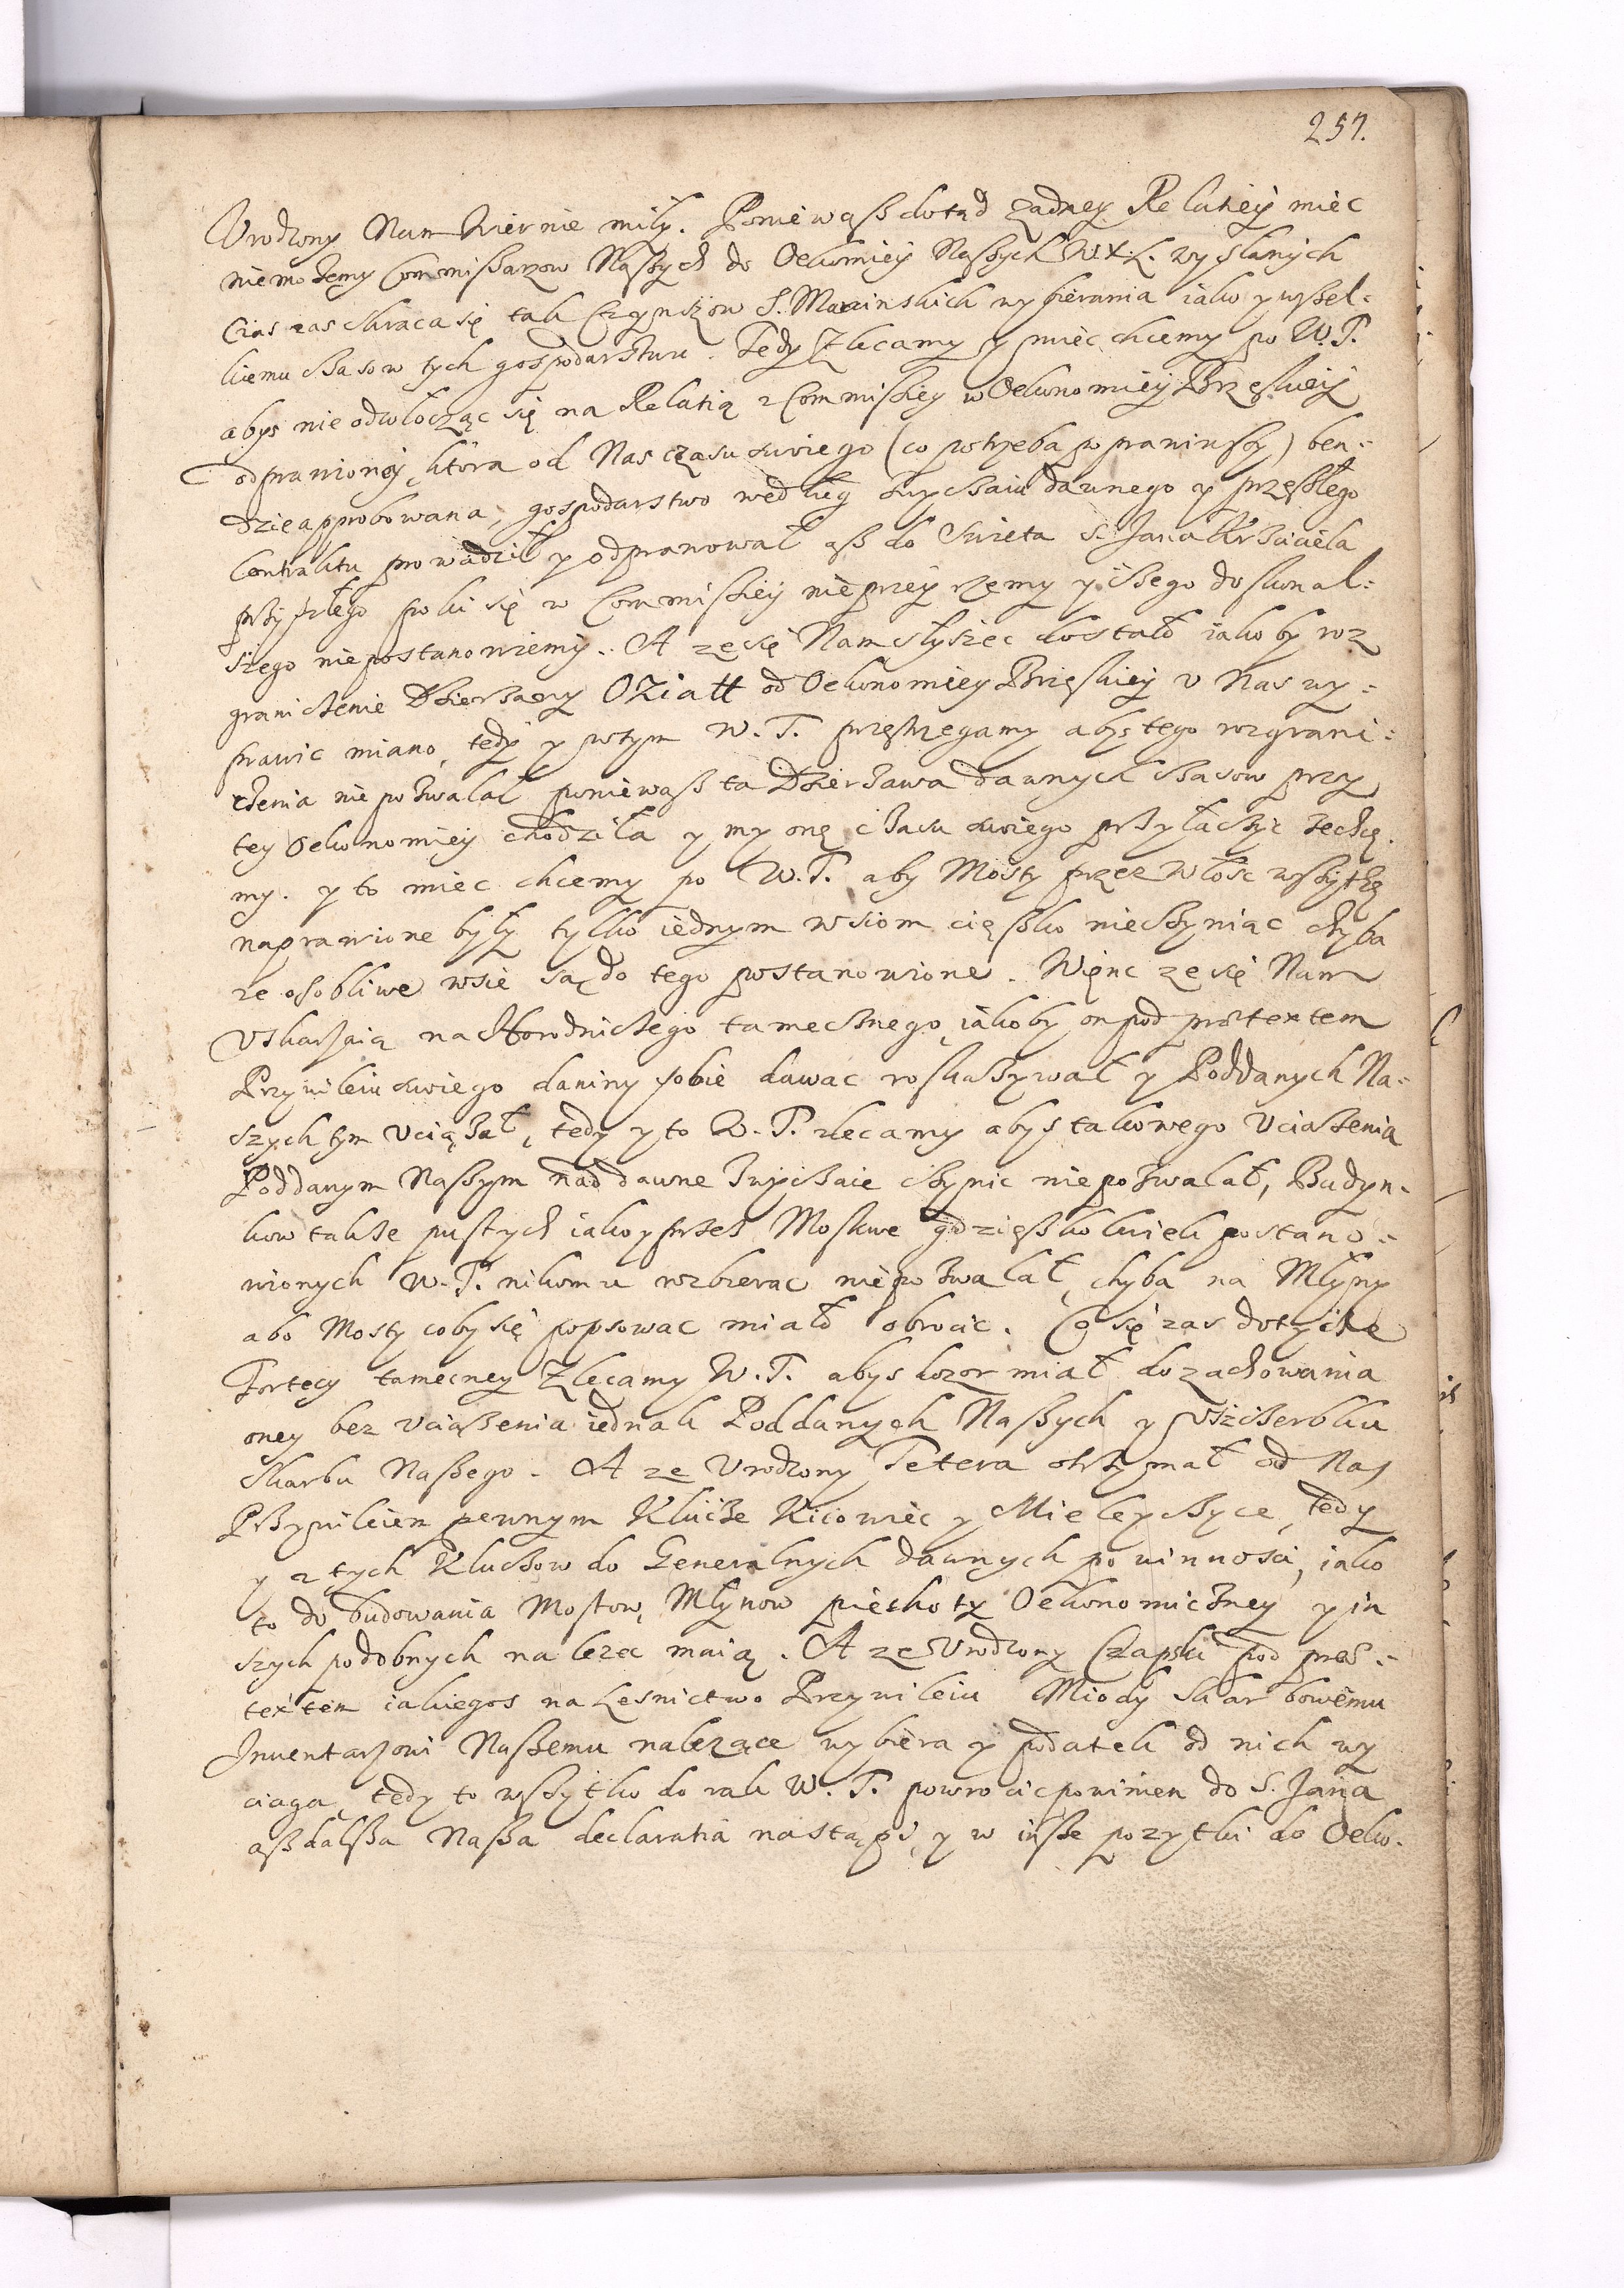 257.
Vrodzony Nam Wiernie miły. Ponieważ dotąd żadney Relatiey miec
niemożemy Commissarzow Naszych do Oekonomiey Naszych W.X.L. wysłanych
Czas zas skraca się tak Czynszow S. Marcinskich wybierania iako y wszel-
kiemu czasow tych gospodarstwu. Tedy Zlecamy y miec chcemy po W.T.
abys nie odwłocząc się na Relatią z Commissiey w Oekonomiey Brzeskiey
odprawioney, ktora od Nas czasu swiego (co potrzeba poprawiwszy) ben-
dzie approbowana, gospodarstwo według zwyczaiu dawnego y przeszłego
Contraktu prowadził y odprawował asz do Swieta S. Jana Krzciciela
przyszłego poki się w Commissiey nieprzeyrzemy y czego doskonal-
szego niepostanowiemy. A ze się Nam słyszec dostało iakoby roz
graniczenie Dzierzawy OZiatt od Oekonomiey Brzeskiey v Nas wy-
prawic miano, tedy y wtym W.T. przestrzegamy abys tego rozgrani-
czenia niepozwalał poniewasz ta Dzierzawa dawnych czasow przy
tey Oekonomiey chodziła y my onę czasu swiego przyłaczyc zechcę-
my. y to miec chcemy po W.T. aby Mosty przez Włosc wszytkę
naprawione były tylko iednym wsiom cięszko nieczyniąc chyba
ze osobliwe wsie są do tego postanowione. Więnc ze się Nam
Vskarzaią na Horodniczego tamecznego, iakoby on pod prætextem
Przywileiu swiego daniny sobie dawac roskazywał y Poddanych Na-
szych tym Vciązał, tedy y to W.T. zlecamy abys takowego Vciazenia
Poddanym Naszym nad dawne zwyczaie czynic niepozwalał, Budyn-
kow takze pustych iako y przez Moskwe gdzieszkolwiek postano-
wionych W.T. nikomu rozbierac niepozwalał, chyba na Młyny
abo Mosty coby się popsowac miało obrocic. Co się zas dotycze
Fortecy tameczney Zlecamy W.T. abys dozor miał do zachowania
oney bez Vciazenia iednak Poddanych Naszych y Vszczerbku
Skarbu Naszego. A ze Vrodzony Tetera otrzymał od Nas
Przywileiem pewnym Klucze Kiiowiec y Mieleyczyce, tedy
y z tych Kluczow do Generalnych dawnych powinnosci, iako
to do budowania Mostow, Młynow piechoty Oekonomiczney y in
szych podobnych nalezec maią. A ze Vrodzony Czapski pod præ-
textem iakiegos na Lesnictwo Przywileiu Miody skarbowemu
Inuentarzowi Naszemu nalezące wybiera y podatek od nich wy
ciaga, tedy to wszytko do rak W.T. powrocic powinien do S. Jana
asz dalsza Nasza declaratia nastąpi, y w insze pozytki do Oeko-